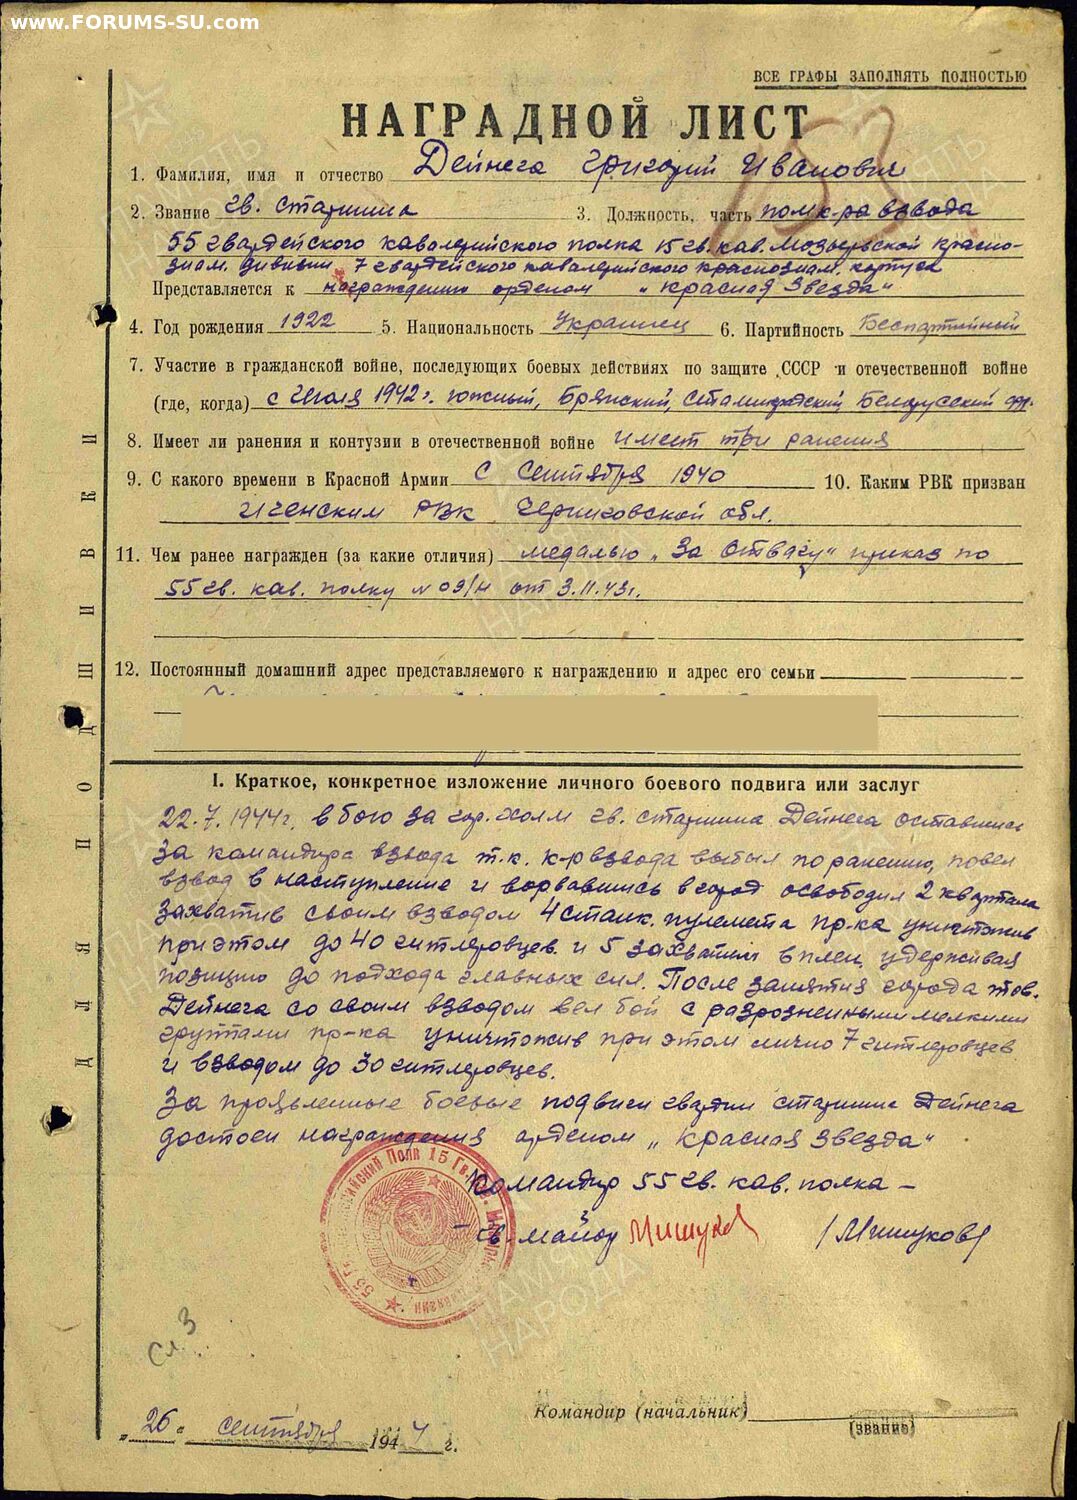 www.FORUMS-SU.com
ВСЕ ГРАФЫ ЗАПОЛНЯТЬ ПОЛНОСТЬЮ
НАГРАДНОЙ ЛИСТ
153
1. Фамилия, имя и отчество Дейнега Григорий Иванович
2. Звание гв. старшина 3. Должность, часть помк-ра взвода
55 гвардейского кавалерийского полка 15 гв. кав. Мозырьской красно-
знам. дивизии 7 гвардейского кавалерийского краснознам. корпуса
Представляется к награждению орденом „Красная Звезда“
4. Год рождения 1922 5. Национальность Украинец 6. Партийность Беспартийный
7. Участие в гражданской войне, последующих боевых действиях по защите СССР и отечественной войне
(где, когда) с Июля 1942 г. Южный, Брянский, Сталинградский Белорусский фр.
8. Имеет ли ранения и контузии в отечественной войне Имеет три ранения
9. С какого времени в Красной Армии С Сентября 1940 10. Каким РВК призван
Ичнским РВК Черниговской обл.
11. Чем ранее награжден (за какие отличия) медалью „За Отвагу“ приказ по
55 гв. кав. полку № 09/н от 3.11.43 г.
12. Постоянный домашний адрес представляемого к награждению и адрес его семьи
ДЛЯ ПОДШИВКИ
I. Краткое, конкретное изложение личного боевого подвига или заслуг
22.7.1944 г. в бою за гор. Холм гв. старшина Дейнега оставшись
за командира взвода т.к. к-р взвода выбыл по ранению, повел
взвод в наступление и ворвавшись в город освободил 2 квартала
захватив своим взводом 4 станк. пулемета пр-ка уничтожив
при этом до 40 гитлеровцев и 5 захватил в плен, удерживая
позицию до подхода главных сил. После занятия города тов.
Дейнега со своим взводом вел бой с разрозненными мелкими
группами пр-ка уничтожив при этом лично 7 гитлеровцев
и взводом до 30 гитлеровцев.
За проявленные боевые подвиги гвардии старшина Дейнега
достоен награждения орденом „Красная Звезда“
Командир 55 гв. кав. полка –
– гв. майор Мишуков /Мишуков/
Сл. 3
Командир (начальник)
(звание)
„26“ сентября 1944 г.